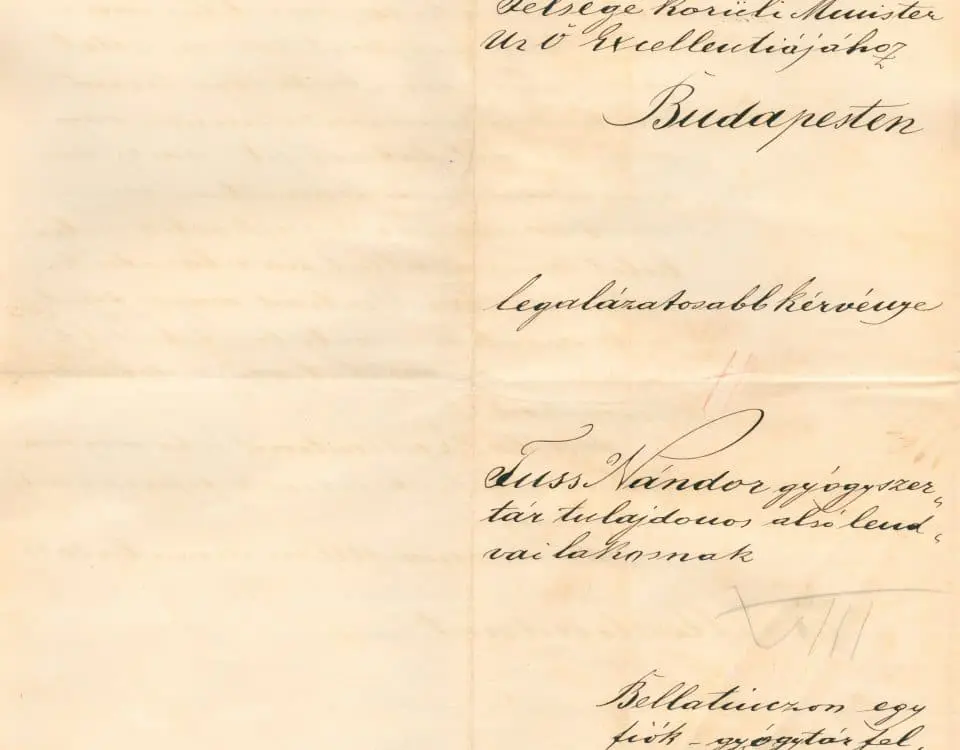 Felsége körüli Minister
Ur Ő Excellentiájához
Budapesten
legalázatosabb kérvénye
Fuss Nándor gyógyszer„
tár tulajdonos alsó lend„
vai lakosnak
VIII
Bellatinczon egy
fiók-gyógytár fel„